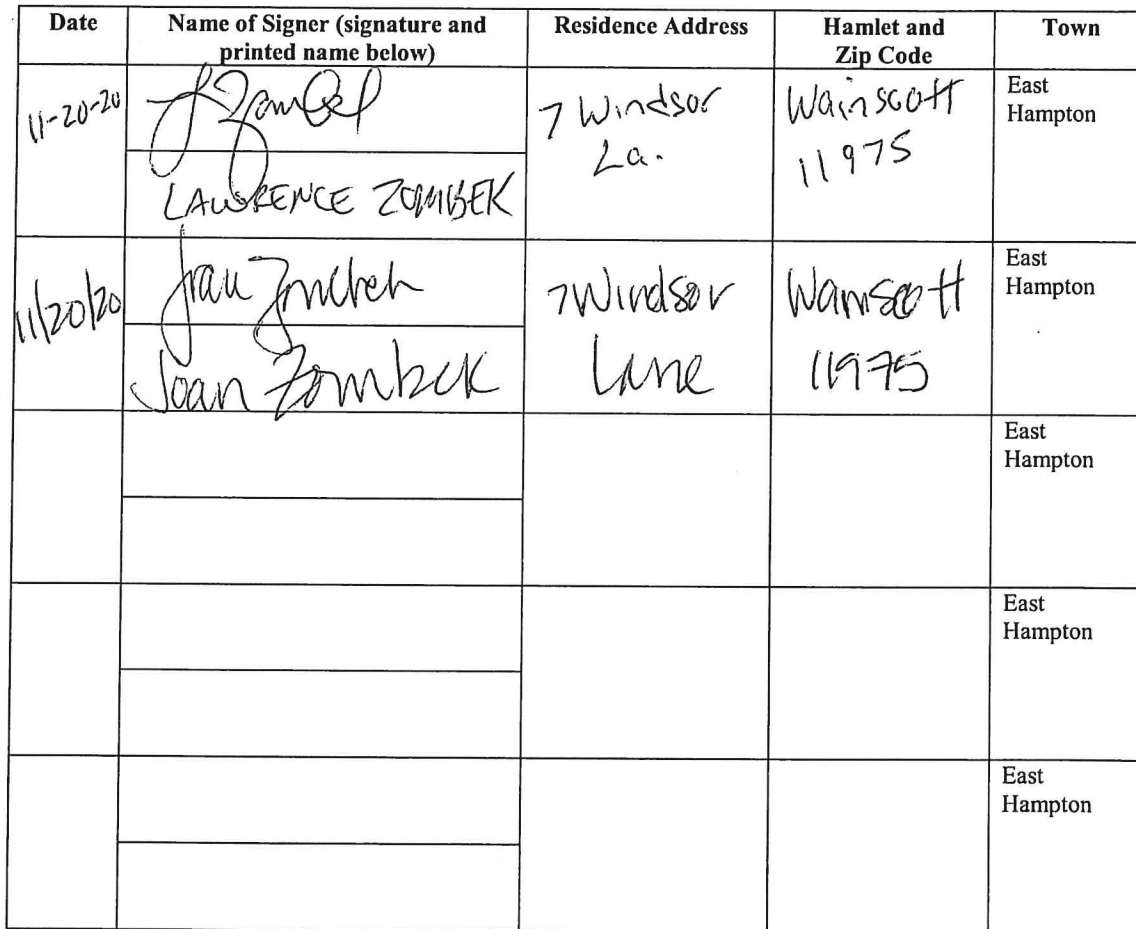 Date
Name of Signer (signature and
printed name below)
Residence Address
Hamlet and
Zip Code
Town
11-20-20
LZombek
LAWRENCE ZOMBEK
7 Windsor
La.
Wainscott
11975
East
Hampton
11/20/20
Joan Zombek
Joan Zombek
7 Windsor
Lane
Wainscott
11975
East
Hampton
East
Hampton
East
Hampton
East
Hampton